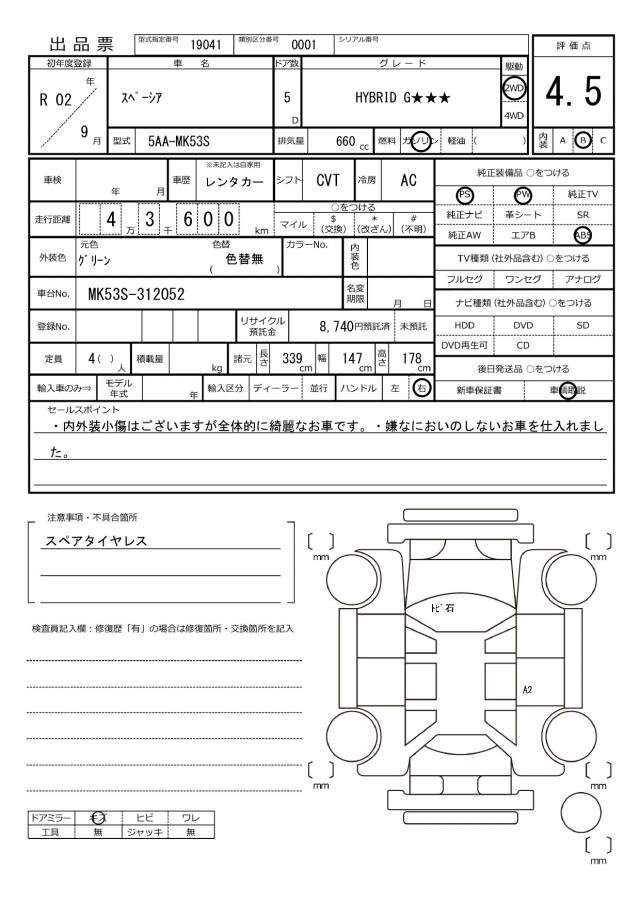 出品票 型式指定番号 19041 類別区分番号 0001 シリアル番号
評価点
4.5
内装 A B C
初年度登録 車名 ドア数 グレード 駆動
R 02 年 9 月 スペーシア 5 D HYBRID G★★★ 2WD 4WD
型式 5AA-MK53S 排気量 660 cc 燃料 ガソリン 軽油 ( )
車検 年 月 車歴 ※未記入は自家用 レンタカー シフト CVT 冷房 AC
走行距離 4 万 3 千 6 0 0 km ○をつける マイル $ (交換) * (改ざん) # (不明)
外装色 元色 グリーン 色替 ( 色替無 ) カラーNo. 内装色
車台No. MK53S-312052 名変期限 月 日
登録No. リサイクル預託金 8,740円預託済 未預託
定員 4( ) 人 積載量 kg 諸元 長さ 339 cm 幅 147 cm 高さ 178 cm
輸入車のみ⇒ モデル年式 年 輸入区分 ディーラー 並行 ハンドル 左 右
純正装備品 ○をつける
PS PW 純正TV
純正ナビ 革シート SR
純正AW エアB ABS
TV種類(社外品含む)○をつける
フルセグ ワンセグ アナログ
ナビ種類(社外品含む)○をつける
HDD DVD SD
DVD再生可 CD
後日発送品 ○をつける
新車保証書 車輌取説
セールスポイント
・内外装小傷はございますが全体的に綺麗なお車です。・嫌なにおいのしないお車を仕入れまし
た。
注意事項・不具合箇所
スペアタイヤレス
検査員記入欄：修復歴「有」の場合は修復箇所・交換箇所を記入
ドアミラー キズ ヒビ ワレ
工具 無 ジャッキ 無
〔 〕 mm
〔 〕 mm
トビ石
A2
〔 〕 mm
〔 〕 mm
〔 〕 mm